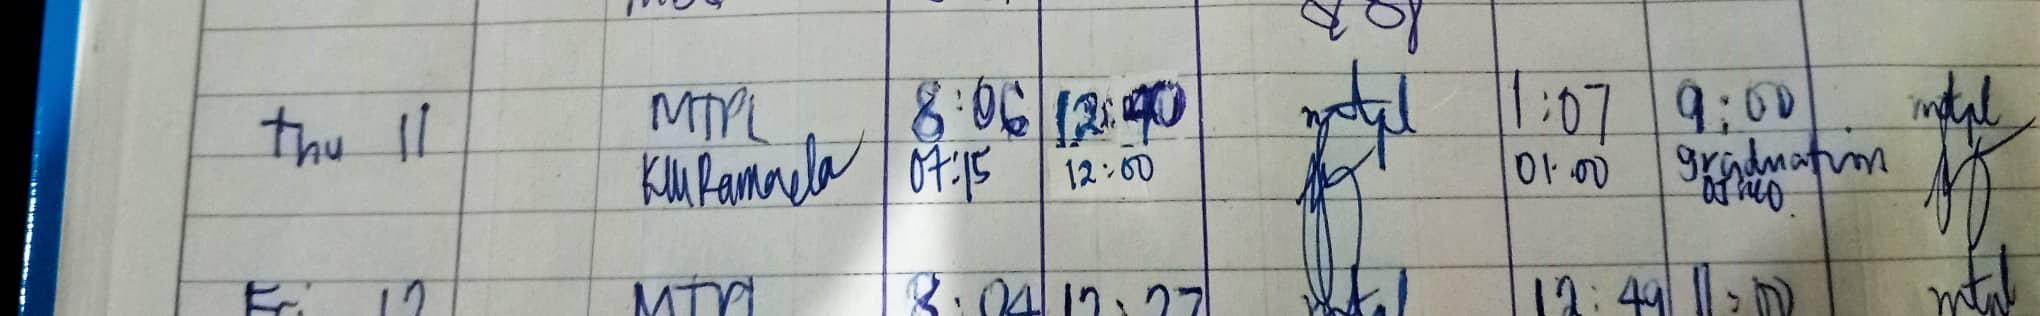 Thu 11 MTPL 8:06 12:40 mtpl 1:07 9:00 mtpl
KM Ramaela 07:15 12:00 01:00 graduation
Fri 12 MTPL 8:04 12:27 mtpl 12:49 11:00 mtpl